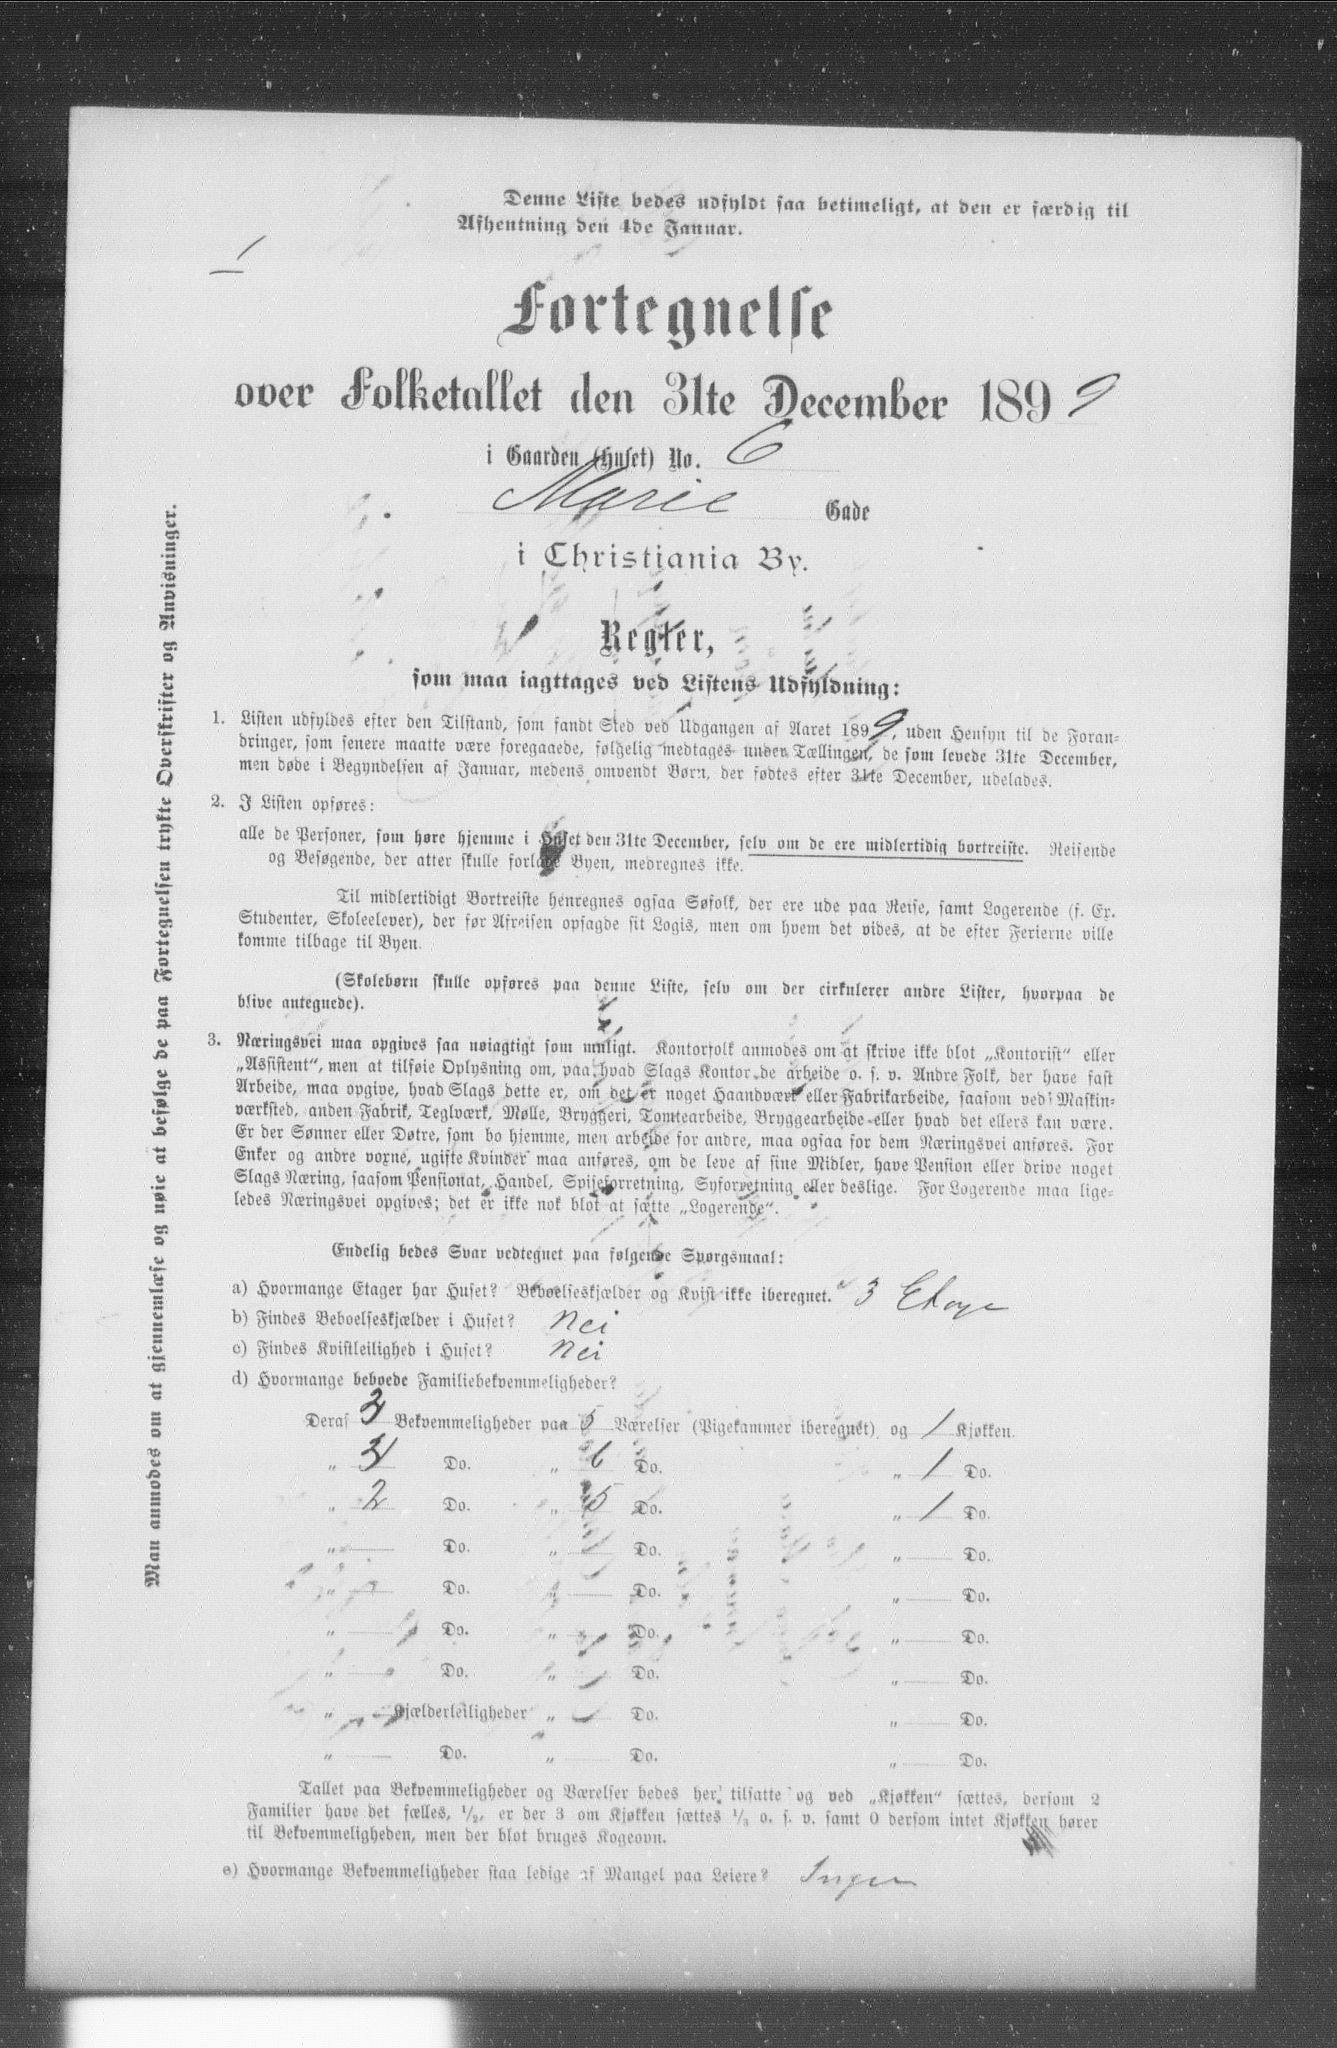 Denne Liste bedes udfyldt saa betimeligt, at den er færdig til
Afhentning den 4de Januar.
Fortegnelse
over Folketallet den 31te December 1899
i Gaarden (Huset) No. 6
Marie Gade
i Christiania By.
Regler,
som maa iagttages ved Listens Udfyldning:
1. Listen udfyldes efter den Tilstand, som fandt Sted ved Udgangen af Aaret 1899, uden Hensyn til de Foran-
dringer, som senere maatte være foregaaede, følgelig medtages under Tællingen, de som levede 31te December,
men døde i Begyndelsen af Januar, medens omvendt Børn, der fødtes efter 31te December, udelades.
2. I Listen opføres:
alle de Personer, som høre hjemme i Huset den 31te December, selv om de ere midlertidig bortreiste. Reisende
og Besøgende, der atter skulle forlade Byen, medregnes ikke.
Til midlertidigt Bortreiste henregnes ogsaa Søfolk, der ere ude paa Reise, samt Logerende (f. Ex.
Studenter, Skoleelever), der før Afreisen opsagde sit Logis, men om hvem det vides, at de efter Ferierne ville
komme tilbage til Byen.
(Skolebørn skulle opføres paa denne Liste, selv om der cirkulerer andre Lister, hvorpaa de
blive antegnede).
3. Næringsvei maa opgives saa nøiagtigt som muligt. Kontorfolk anmodes om at skrive ikke blot „Kontorist“ eller
„Assistent“, men at tilføie Oplysning om, paa hvad Slags Kontor de arbeide o. s. v. Andre Folk, der have fast
Arbeide, maa opgive, hvad Slags dette er, om det er noget Haandværk eller Fabrikarbeide, saasom ved Maskin-
værksted, anden Fabrik, Teglværk, Mølle, Bryggeri, Tomtearbeide, Bryggearbeide eller hvad det ellers kan være.
Er der Sønner eller Døtre, som bo hjemme, men arbeide for andre, maa ogsaa for dem Næringsvei anføres. For
Enker og andre voxne, ugifte Kvinder maa anføres, om de leve af sine Midler, have Pension eller drive noget
Slags Næring, saasom Pensionat, Handel, Spiseforretning, Syforretning eller deslige. For Logerende maa lige-
ledes Næringsvei opgives; det er ikke nok blot at sætte „Logerende“.
Endelig bedes Svar vedtegnet paa følgende Spørgsmaal:
a) Hvormange Etager har Huset? Beboelseskjælder og Kvist ikke iberegnet. 3 Etage
b) Findes Beboelseskjælder i Huset? Nei
c) Findes Kvistleilighed i Huset? Nei
d) Hvormange beboede Familiebekvemmeligheder?
Deraf Bekvemmeligheder paa 5 Værelser (Pigekammer iberegnet) og 1 Kjøkken.
„ Do. „ 6 Do. „ 1 Do.
„ 2 Do. „ 5 Do. „ 1 Do.
„ Do. „ Do. „ Do.
„ Do. „ Do. „ Do.
„ Do. „ Do. „ Do.
„ Do. „ Do. „ Do.
„ Kjælderleiligheder „ Do. „ Do.
„ Do. „ Do. „ Do.
Tallet paa Bekvemmeligheder og Værelser bedes her tilsatte og ved „Kjøkken“ sættes, dersom 2
Familier have det fælles, 1/2, er der 3 om Kjøkken sættes 1/3 o. s. v. samt 0 dersom intet Kjøkken hører
til Bekvemmeligheden, men der blot bruges Kogeovn.
e) Hvormange Bekvemmeligheder staa ledige af Mangel paa Leiere? Ingen
Man anmodes om at gjennemlæse og nøie at befølge de paa Fortegnelsen trykte Overskrifter og Anvisninger.